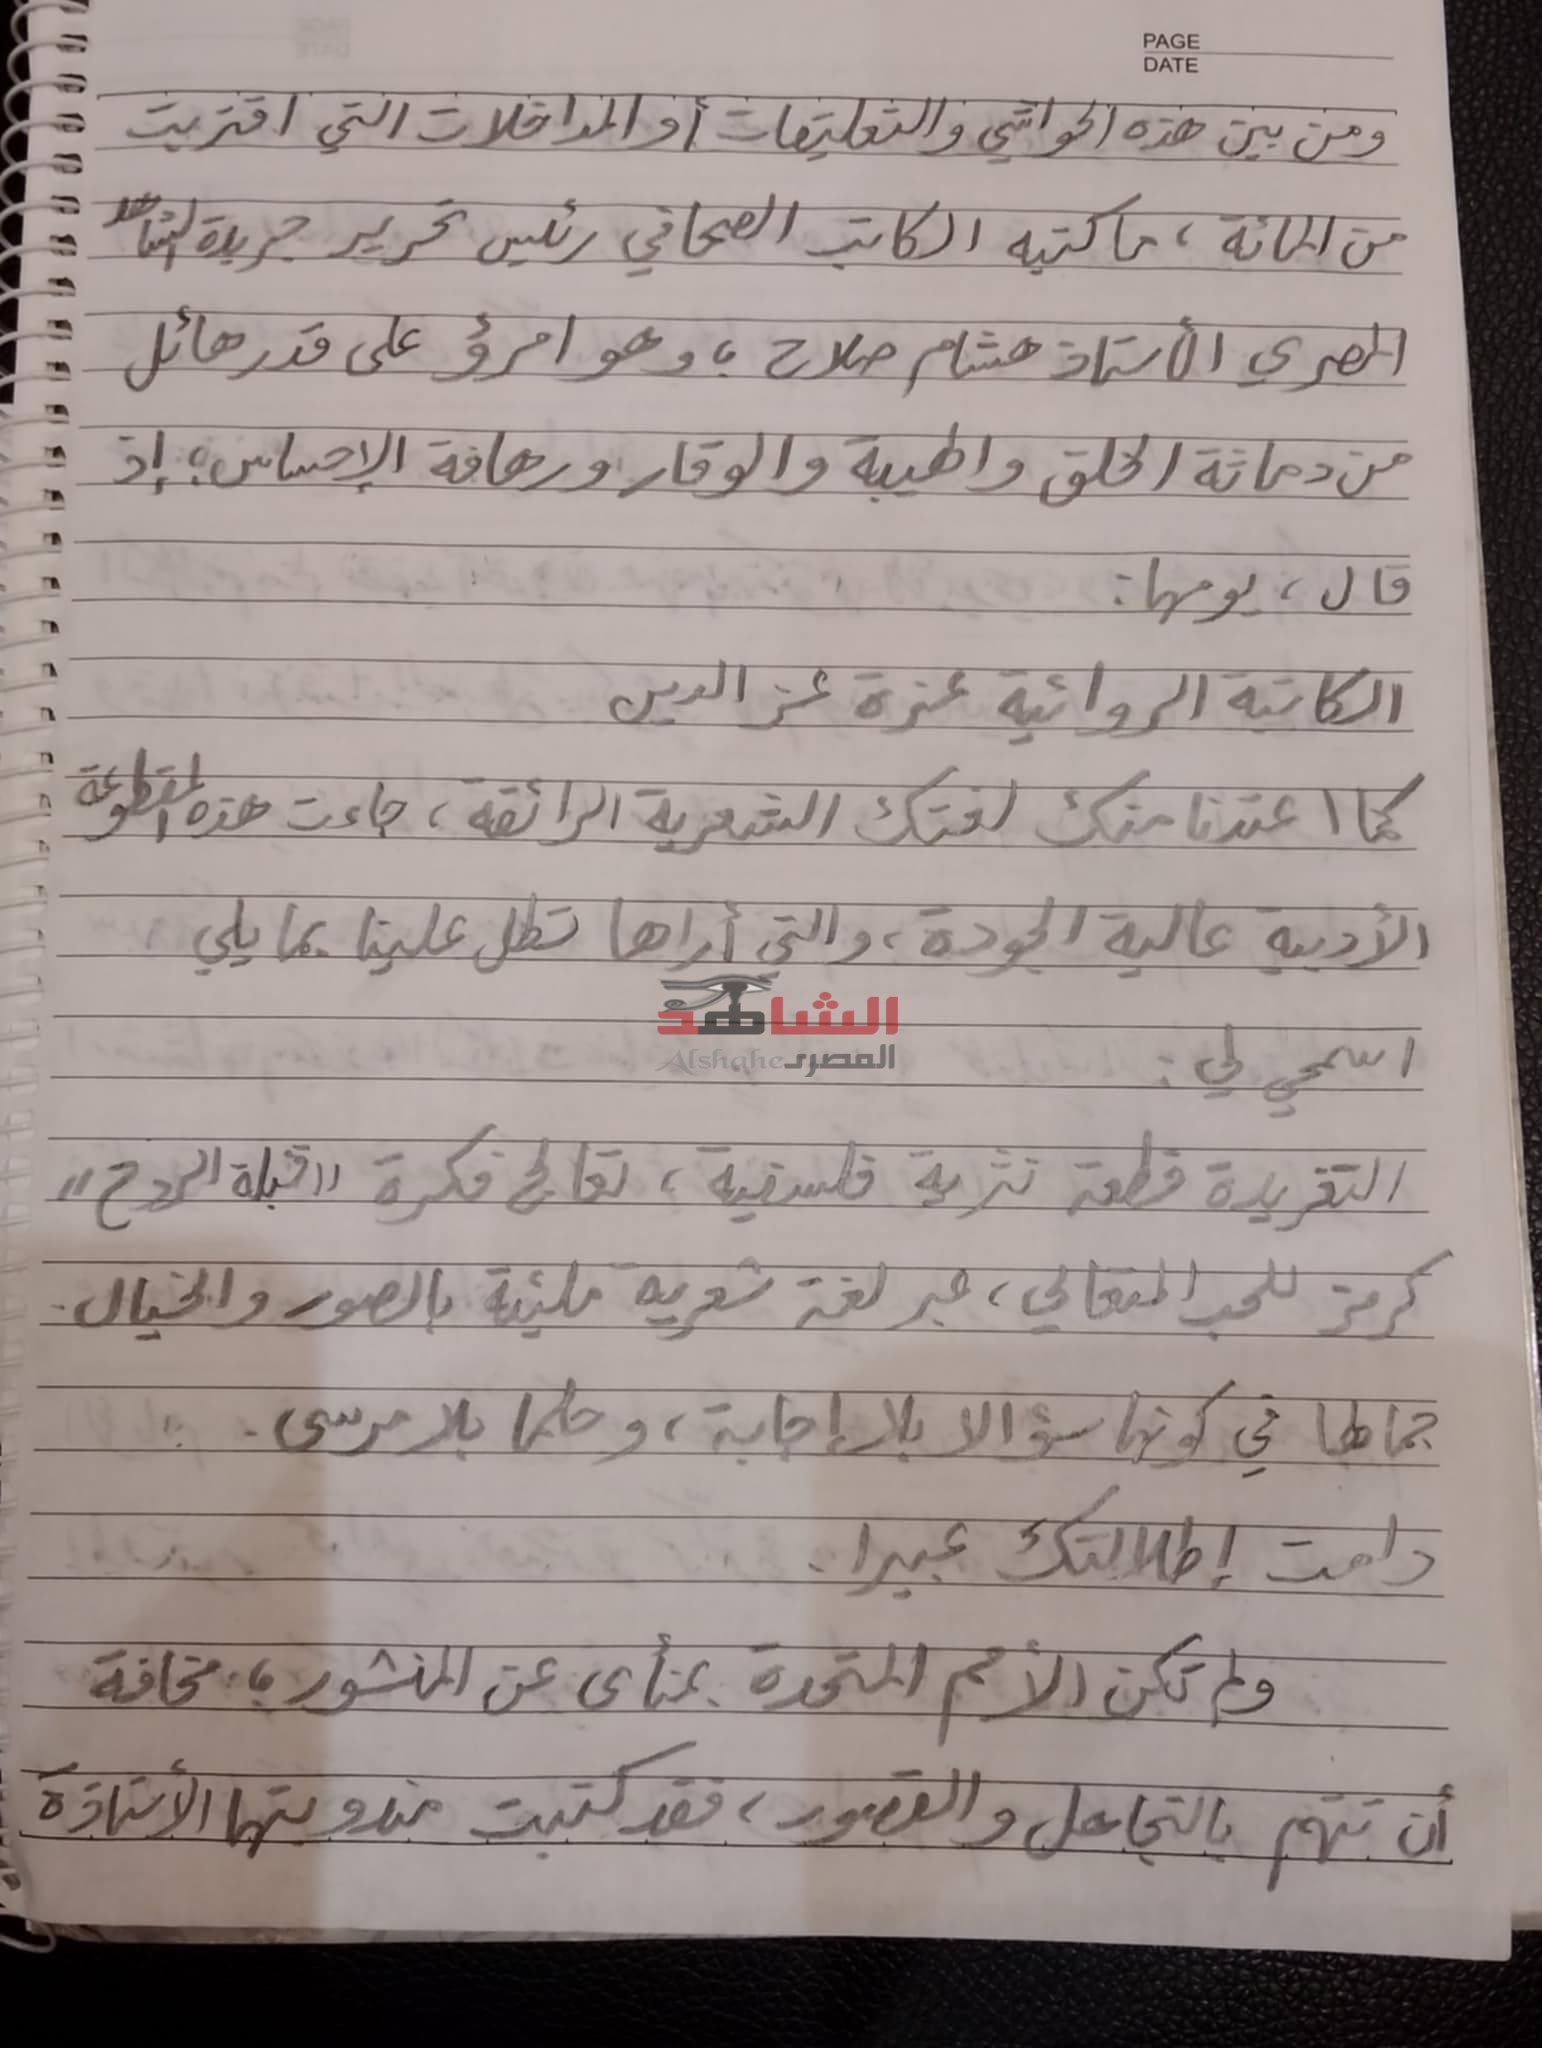 PAGE
DATE
ومن بين هذه الحواشي والتعليقات أو المداخلات التي اقتربت
من المائة، ما كتبه الكاتب الصحافي رئيس تحرير جريدة الشاهد
المصري الأستاذ هشام صلاح؛ وهو امرؤ على قدر هائل
من دماثة الخلق والهيبة والوقار ورهافة الإحساس؛ إذ
قال، يومها:
الكاتبة الروائية عزة عز الدين
كما اعتدنا منك لغتك الشعرية الرائقة، جاءت هذه المقطوعة
الأدبية عالية الجودة، والتي أراها تطل علينا بما يلي،
الشاهد
المصرى Alshahe
اسمحي لي:
التغريدة قطعة نثرية فلسفية، تعالج فكرة "قبلة الروح"
كرمز للحب المتعالي، عبر لغة شعرية مليئة بالصور والخيال.
جمالها في كونها سؤالا بلا إجابة، وحلما بلا مرسى.
دامت إطلالتك عبيرا.
ولم تكن الأمم المتحدة بمنأى عن المنشور؛ مخافة
أن تتهم بالتجاهل والقصور، فقد كتبت مندوبتها الأستاذة